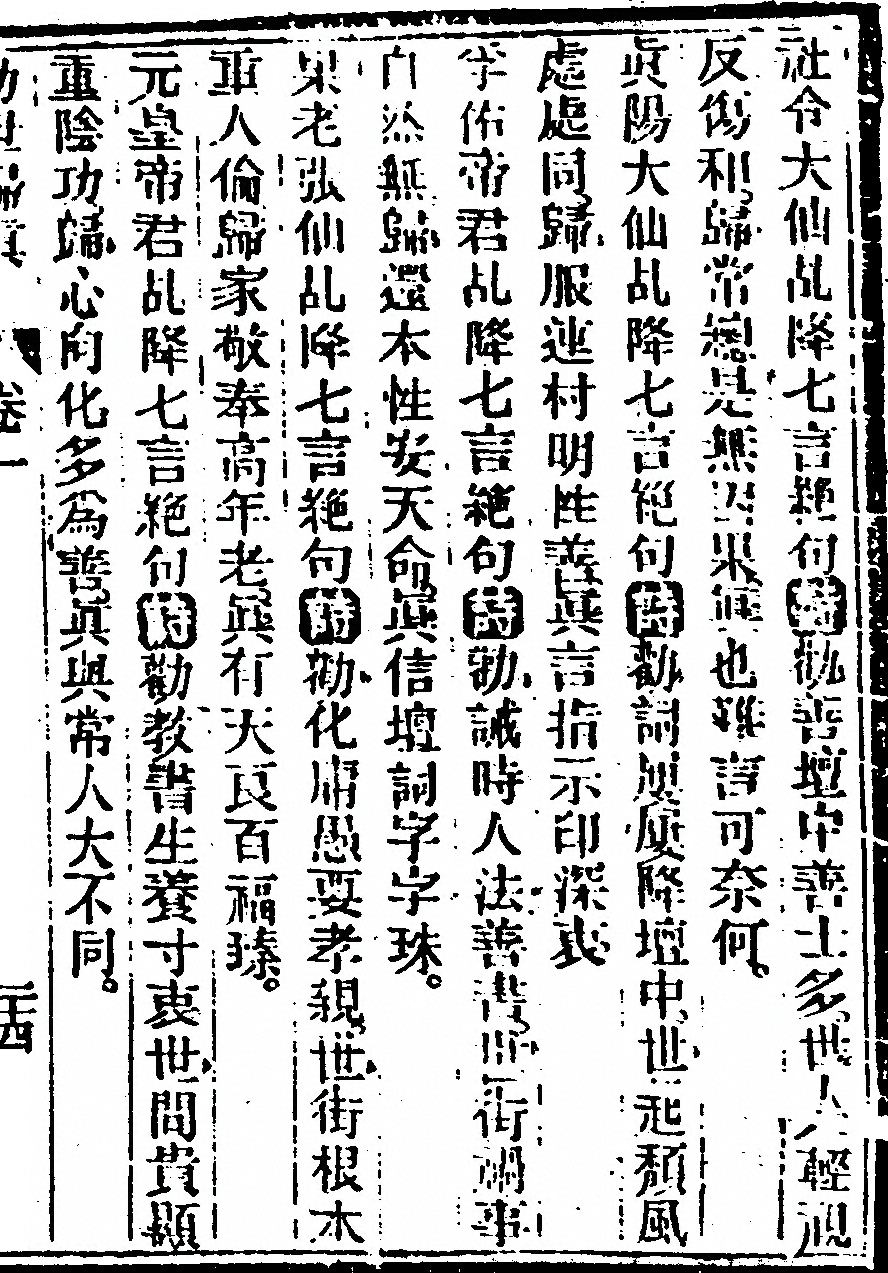 社令大仙乩降七言絶句詩勸善壇中善士多世人輕視
反傷和歸常總是無因果真也難言可奈何
眞陽大仙乩降七言絕句詩勸詞屢屢降壇中世起頽風
處處同歸服連村明性善眞言指示印深衷
孚佑帝君乩降七言絶句詩勸誡時人法善書世街禍事
自然無歸還本性安天命眞信壇詞字字珠
果老張仙乩降七言絶句詩勸化庸愚要孝親世街根本
重人倫歸家敬奉高年老眞有天良百福臻
元皇帝君乩降七言絶句詩勸教書生養寸衷世間貴顯
重陰功歸心向化多為善眞與常人大不同
卷一 二十四